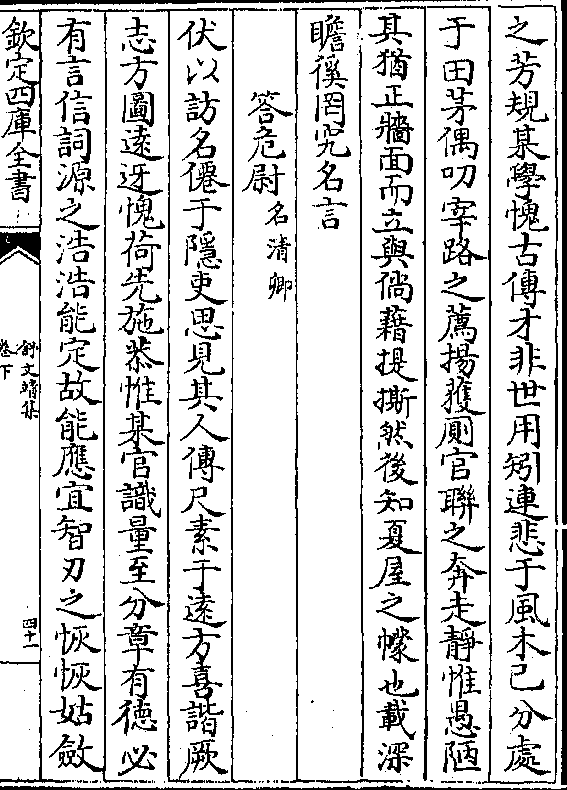 之芳規某學愧古傳才非世用矧連悲于風木已分處
于田茅偶叨宰路之薦揚獲厠官聯之奔走靜惟愚陋
其猶正牆面而立與倘藉提撕然後知夏屋之幪也載深
瞻徯罔究名言
答危尉名清卿
伏以訪名僊于隱吏思見其人傳尺素于遠方喜諧厥
志方圖遠迓愧荷先施恭惟某官識量至分章有德必
有言信詞源之浩浩能定故能應宜智刃之恢恢姑斂
欽定四庫全書
舒文靖集
卷下
四十一